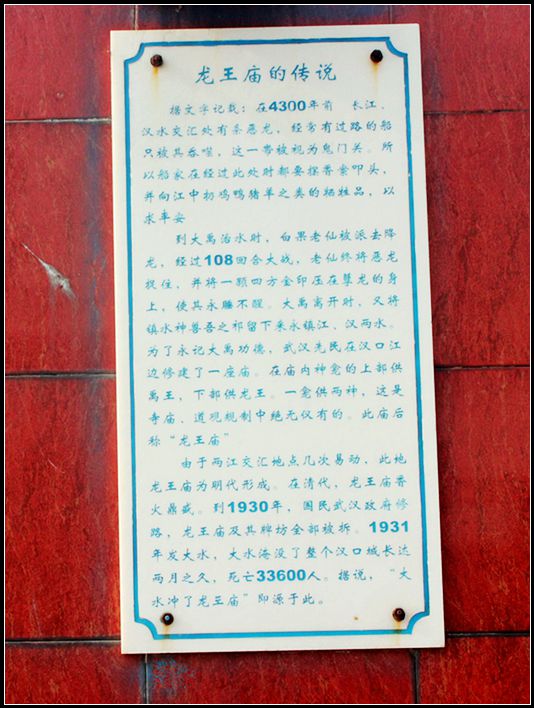 龙王庙的传说
据文字记载：在4300年前　长江、
汉水交汇处有条恶龙，经常有过路的船
只被其吞噬，这一带被视为鬼门关。所
以船家在经过此处时都要摆香案叩头，
并向江中扔鸡鸭猪羊之类的牺牲品，以
求平安
到大禹治水时，白果老仙被派去降
龙，经过108回合大战，老仙终将恶龙
捉住，并将一颗四方金印压在孽龙的身
上，使其永睡不醒。大禹离开时，又将
镇水神兽吾之祁留下来永镇江、汉两水。
为了永记大禹功德，武汉先民在汉口江
边修建了一座庙。在庙内神龛的上部供
禹王，下部供龙王。一龛供两神，这是
寺庙、道观规制中绝无仅有的。此庙后
称“龙王庙”
由于两江交汇地点几次易动，此地
龙王庙为明代形成。在清代，龙王庙香
火鼎盛。到1930年，国民武汉政府修
路，龙王庙及其牌坊全部被拆。1931
年发大水，大水淹没了整个汉口城长达
两月之久，死亡33600人。据说，“大
水冲了龙王庙”即源于此。